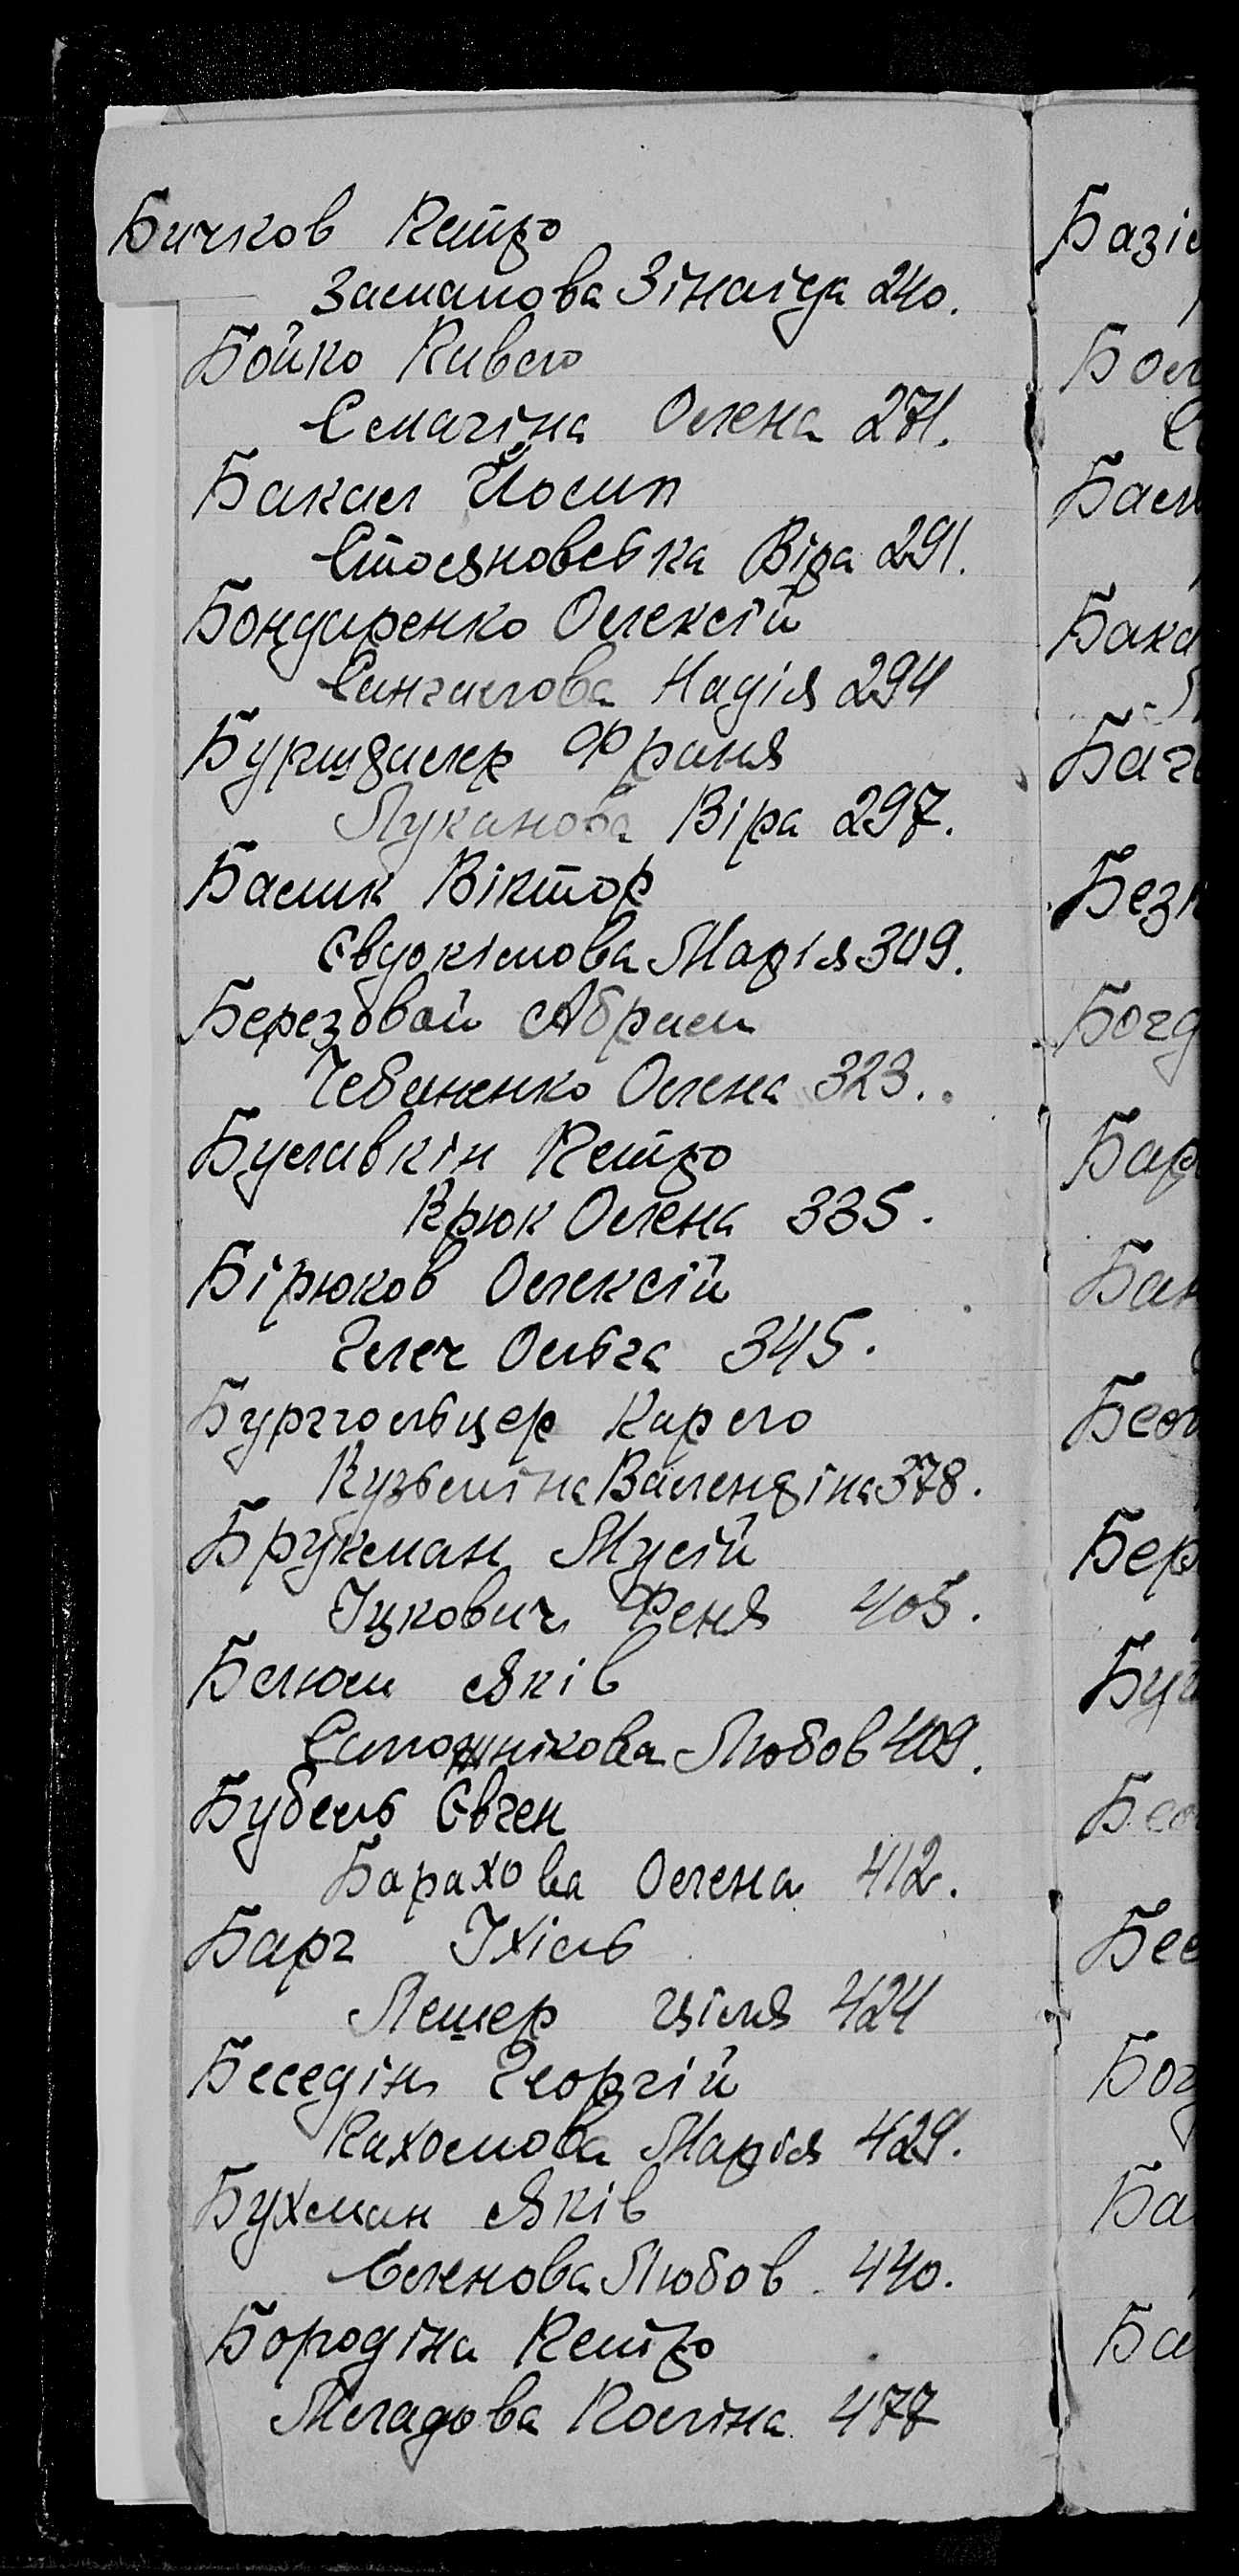 Бичков Петро
Заспапова Зінаіда 240.
Бойко Павло
Смагіна Олена 271.
Бакал Йосип
Стояновська Віра 291.
Бондаренко Олексій
Сангалова Надія 294
Буршталер Франя
Луканова Віра 297.
Балик Віктор
Євдокімова Марія 309.
Березовой Абрам
Чебаненко Олена 323.
Булавкін Петро
Крюк Олена 335.
Бірюков Олексій
Глек Ольга 345.
Бурггольцер Карло
Кузьміна Валентіна 378.
Брукман Мусій
Іцкович Феня 405.
Блюм Яків
Сапожнікова Любов 409.
Бубель Євген
Барахова Олена 412.
Барг Іхіль
Лешер Ціля 424
Беседін Георгій
Пахомова Марія 429.
Бухман Яків
Семенова Любов 440.
Бородіна Петро
Магадова Поліна 477
Базі
Бол
Бал
Бака
Баг
Без
Богд
Бар
Бан
Бер
Бу
Бог
Ба
Ба